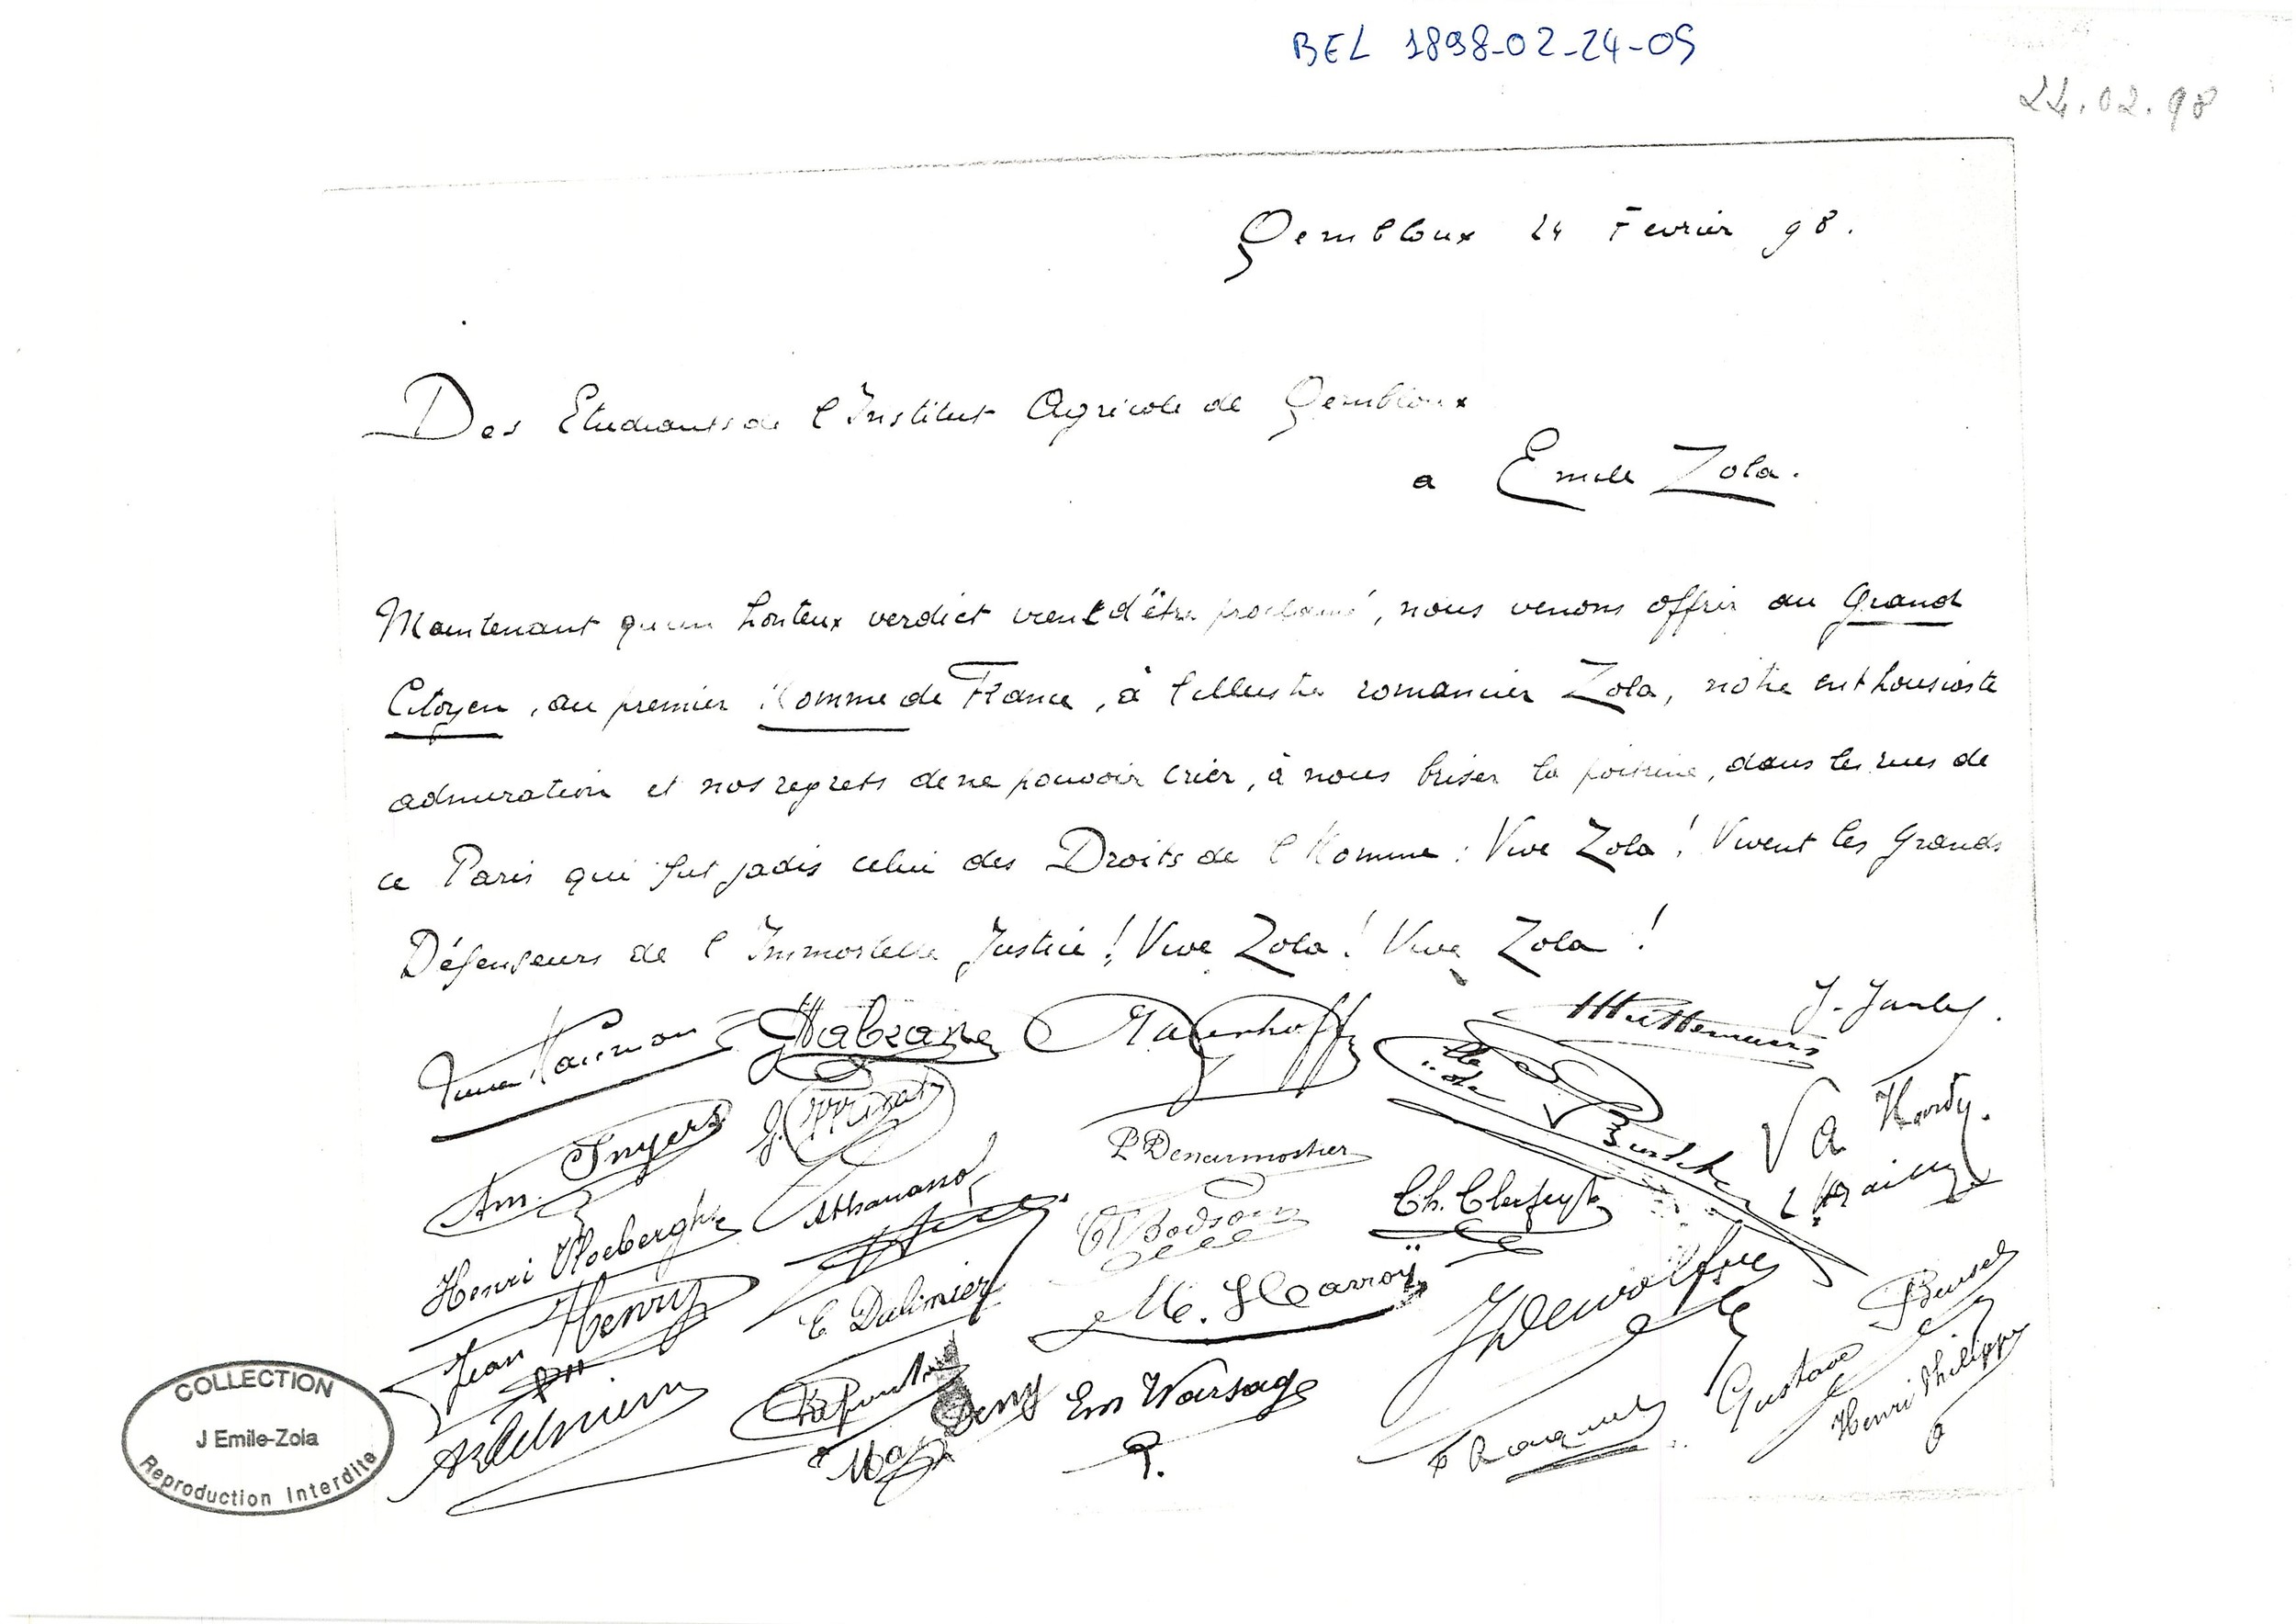 BEL 1898-02-24-05
24.02.98
Gembloux 24 Fevrier 98.
Des Etudiants de l'Institut Agricole de Gembloux
a Emile Zola.
Maintenant qu'un honteux verdict vient d'être proclamé, nous venons offrir au Grand
Citoyen, au premier Homme de France, à l'illustre romancier Zola, notre enthousiaste
admiration et nos regrets de ne pouvoir crier, à nous briser la poitrine, dans les rues de
ce Paris qui fut jadis celui des Droits de l'Homme : Vive Zola ! Vivent les Grands
Défenseurs de l'Immortelle Justice ! Vive Zola ! Vive Zola !
J. Janly.
Am. Smyers
P Deneumostier
V A Hardy.
Athanasso
Ch. Clerfeyt
Henri
Bodson
Jean Henry
E Dalimier
M. Harroÿ
JDewolfue
Em Warsage
Gustave
Henri Philippe
COLLECTION
J Emile-Zola
Reproduction Interdite